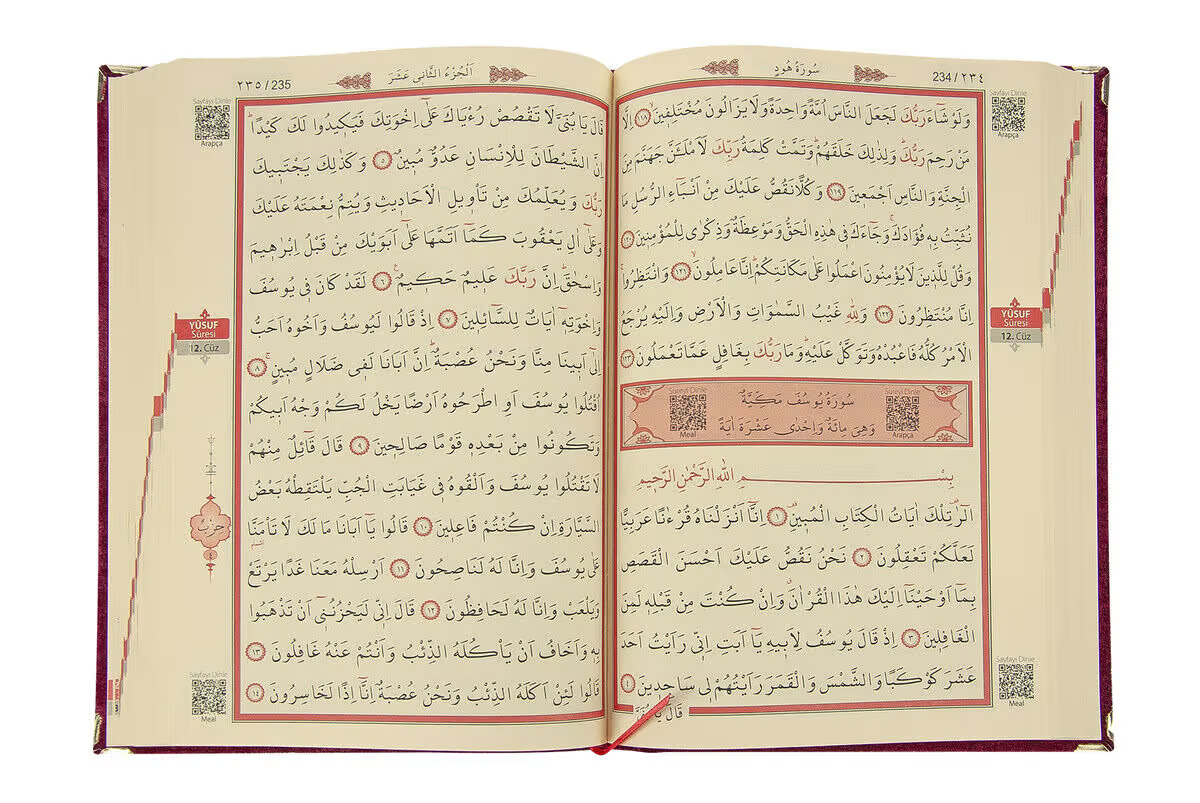 سُورَةُ هُودٍ
234/٢٣٤
Sayfayı Dinle
Arapça
وَلَوْ شَٓاءَ رَبُّكَ لَجَعَلَ النَّاسَ اُمَّةً وَاحِدَةً وَلَا يَزَالُونَ مُخْتَلِف۪ينَۙ ﴿١١٨﴾ اِلَّا
مَنْ رَحِمَ رَبُّكَۜ وَلِذٰلِكَ خَلَقَهُمْۜ وَتَمَّتْ كَلِمَةُ رَبِّكَ لَاَمْلَـَٔنَّ جَهَنَّمَ مِنَ
الْجِنَّةِ وَالنَّاسِ اَجْمَع۪ينَ ﴿١١٩﴾ وَكُلًّا نَقُصُّ عَلَيْكَ مِنْ اَنْبَٓاءِ الرُّسُلِ مَا
نُثَبِّتُ بِه۪ فُؤٰادَكَۚ وَجَٓاءَكَ ف۪ي هٰذِهِ الْحَقُّ وَمَوْعِظَةٌ وَذِكْرٰى لِلْمُؤْمِن۪ينَ ﴿١٢٠﴾
وَقُلْ لِلَّذ۪ينَ لَا يُؤْمِنُونَ اعْمَلُوا عَلٰى مَكَانَتِكُمْۜ اِنَّا عَامِلُونَۙ ﴿١٢١﴾ وَانْتَظِرُواۚ
اِنَّا مُنْتَظِرُونَ ﴿١٢٢﴾ وَلِلّٰهِ غَيْبُ السَّمٰوَاتِ وَالْاَرْضِ وَاِلَيْهِ يُرْجَعُ
الْاَمْرُ كُلُّهُ فَاعْبُدْهُ وَتَوَكَّلْ عَلَيْهِۜ وَمَا رَبُّكَ بِغَافِلٍ عَمَّا تَعْمَلُونَ ﴿١٢٣﴾
YÛSUF
Sûresi
12. Cüz
Sûreyi Dinle
Meal
سُورَةُ يُوسُفَ مَكِّيَّةٌ
وَهِيَ مِائَةٌ وَاِحْدٰى عَشْرَةَ اٰيَةً
Sûreyi Dinle
Arapça
بِسْمِ اللّٰهِ الرَّحْمٰنِ الرَّح۪يمِ
الٓرٰ۠ تِلْكَ اٰيَاتُ الْكِتَابِ الْمُب۪ينِ۠ ﴿١﴾ اِنَّٓا اَنْزَلْنَاهُ قُرْءٰنًا عَرَبِيًّا
لَعَلَّكُمْ تَعْقِلُونَ ﴿٢﴾ نَحْنُ نَقُصُّ عَلَيْكَ اَحْسَنَ الْقَصَصِ
بِمَٓا اَوْحَيْنَٓا اِلَيْكَ هٰذَا الْقُرْاٰنَۗ وَاِنْ كُنْتَ مِنْ قَبْلِه۪ لَمِنَ
الْغَافِل۪ينَ ﴿٣﴾ اِذْ قَالَ يُوسُفُ لِاَب۪يهِ يَٓا اَبَتِ اِنّ۪ي رَاَيْتُ اَحَدَ
عَشَرَ كَوْكَبًا وَالشَّمْسَ وَالْقَمَرَ رَاَيْتُهُمْ ل۪ي سَاجِد۪ينَ ﴿٤﴾
Sayfayı Dinle
Meal
اَلْجُزْءُ الثَّان۪ي عَشَرَ
٢٣٥/235
Sayfayı Dinle
Arapça
قَالَ يَا بُنَيَّ لَا تَقْصُصْ رُءْيَاكَ عَلٰٓى اِخْوَتِكَ فَيَك۪يدُوا لَكَ كَيْدًاۜ
اِنَّ الشَّيْطَانَ لِلْاِنْسَانِ عَدُوٌّ مُب۪ينٌ ﴿٥﴾ وَكَذٰلِكَ يَجْتَب۪يكَ
رَبُّكَ وَيُعَلِّمُكَ مِنْ تَأْو۪يلِ الْاَحَاد۪يثِ وَيُتِمُّ نِعْمَتَهُ عَلَيْكَ
وَعَلٰٓى اٰلِ يَعْقُوبَ كَمَٓا اَتَمَّهَا عَلٰٓى اَبَوَيْكَ مِنْ قَبْلُ اِبْرٰه۪يمَ
وَاِسْحٰقَۜ اِنَّ رَبَّكَ عَل۪يمٌ حَك۪يمٌ۟ ﴿٦﴾ لَقَدْ كَانَ ف۪ي يُوسُفَ
وَاِخْوَتِه۪ٓ اٰيَاتٌ لِلسَّٓائِل۪ينَ ﴿٧﴾ اِذْ قَالُوا لَيُوسُفُ وَاَخُوهُ اَحَبُّ
اِلٰٓى اَب۪ينَا مِنَّا وَنَحْنُ عُصْبَةٌۜ اِنَّ اَبَانَا لَف۪ي ضَلَالٍ مُب۪ينٍۚ ﴿٨﴾
اُقْتُلُوا يُوسُفَ اَوِ اطْرَحُوهُ اَرْضًا يَخْلُ لَكُمْ وَجْهُ اَب۪يكُمْ
وَتَكُونُوا مِنْ بَعْدِه۪ قَوْمًا صَالِح۪ينَ ﴿٩﴾ قَالَ قَٓائِلٌ مِنْهُمْ
لَا تَقْتُلُوا يُوسُفَ وَاَلْقُوهُ ف۪ي غَيَابَتِ الْجُبِّ يَلْتَقِطْهُ بَعْضُ
السَّيَّارَةِ اِنْ كُنْتُمْ فَاعِل۪ينَ ﴿١٠﴾ قَالُوا يَٓا اَبَانَا مَا لَكَ لَا تَأْمَنَّا
عَلٰى يُوسُفَ وَاِنَّا لَهُ لَنَاصِحُونَ ﴿١١﴾ اَرْسِلْهُ مَعَنَا غَدًا يَرْتَعْ
وَيَلْعَبْ وَاِنَّا لَهُ لَحَافِظُونَ ﴿١٢﴾ قَالَ اِنّ۪ي لَيَحْزُنُن۪ٓي اَنْ تَذْهَبُوا
بِه۪ وَاَخَافُ اَنْ يَأْكُلَهُ الذِّئْبُ وَاَنْتُمْ عَنْهُ غَافِلُونَ ﴿١٣﴾
قَالُوا لَئِنْ اَكَلَهُ الذِّئْبُ وَنَحْنُ عُصْبَةٌ اِنَّٓا اِذًا لَخَاسِرُونَ ﴿١٤﴾
YÛSUF
Sûresi
12. Cüz
حِزْبْ
٤
Sayfayı Dinle
Meal